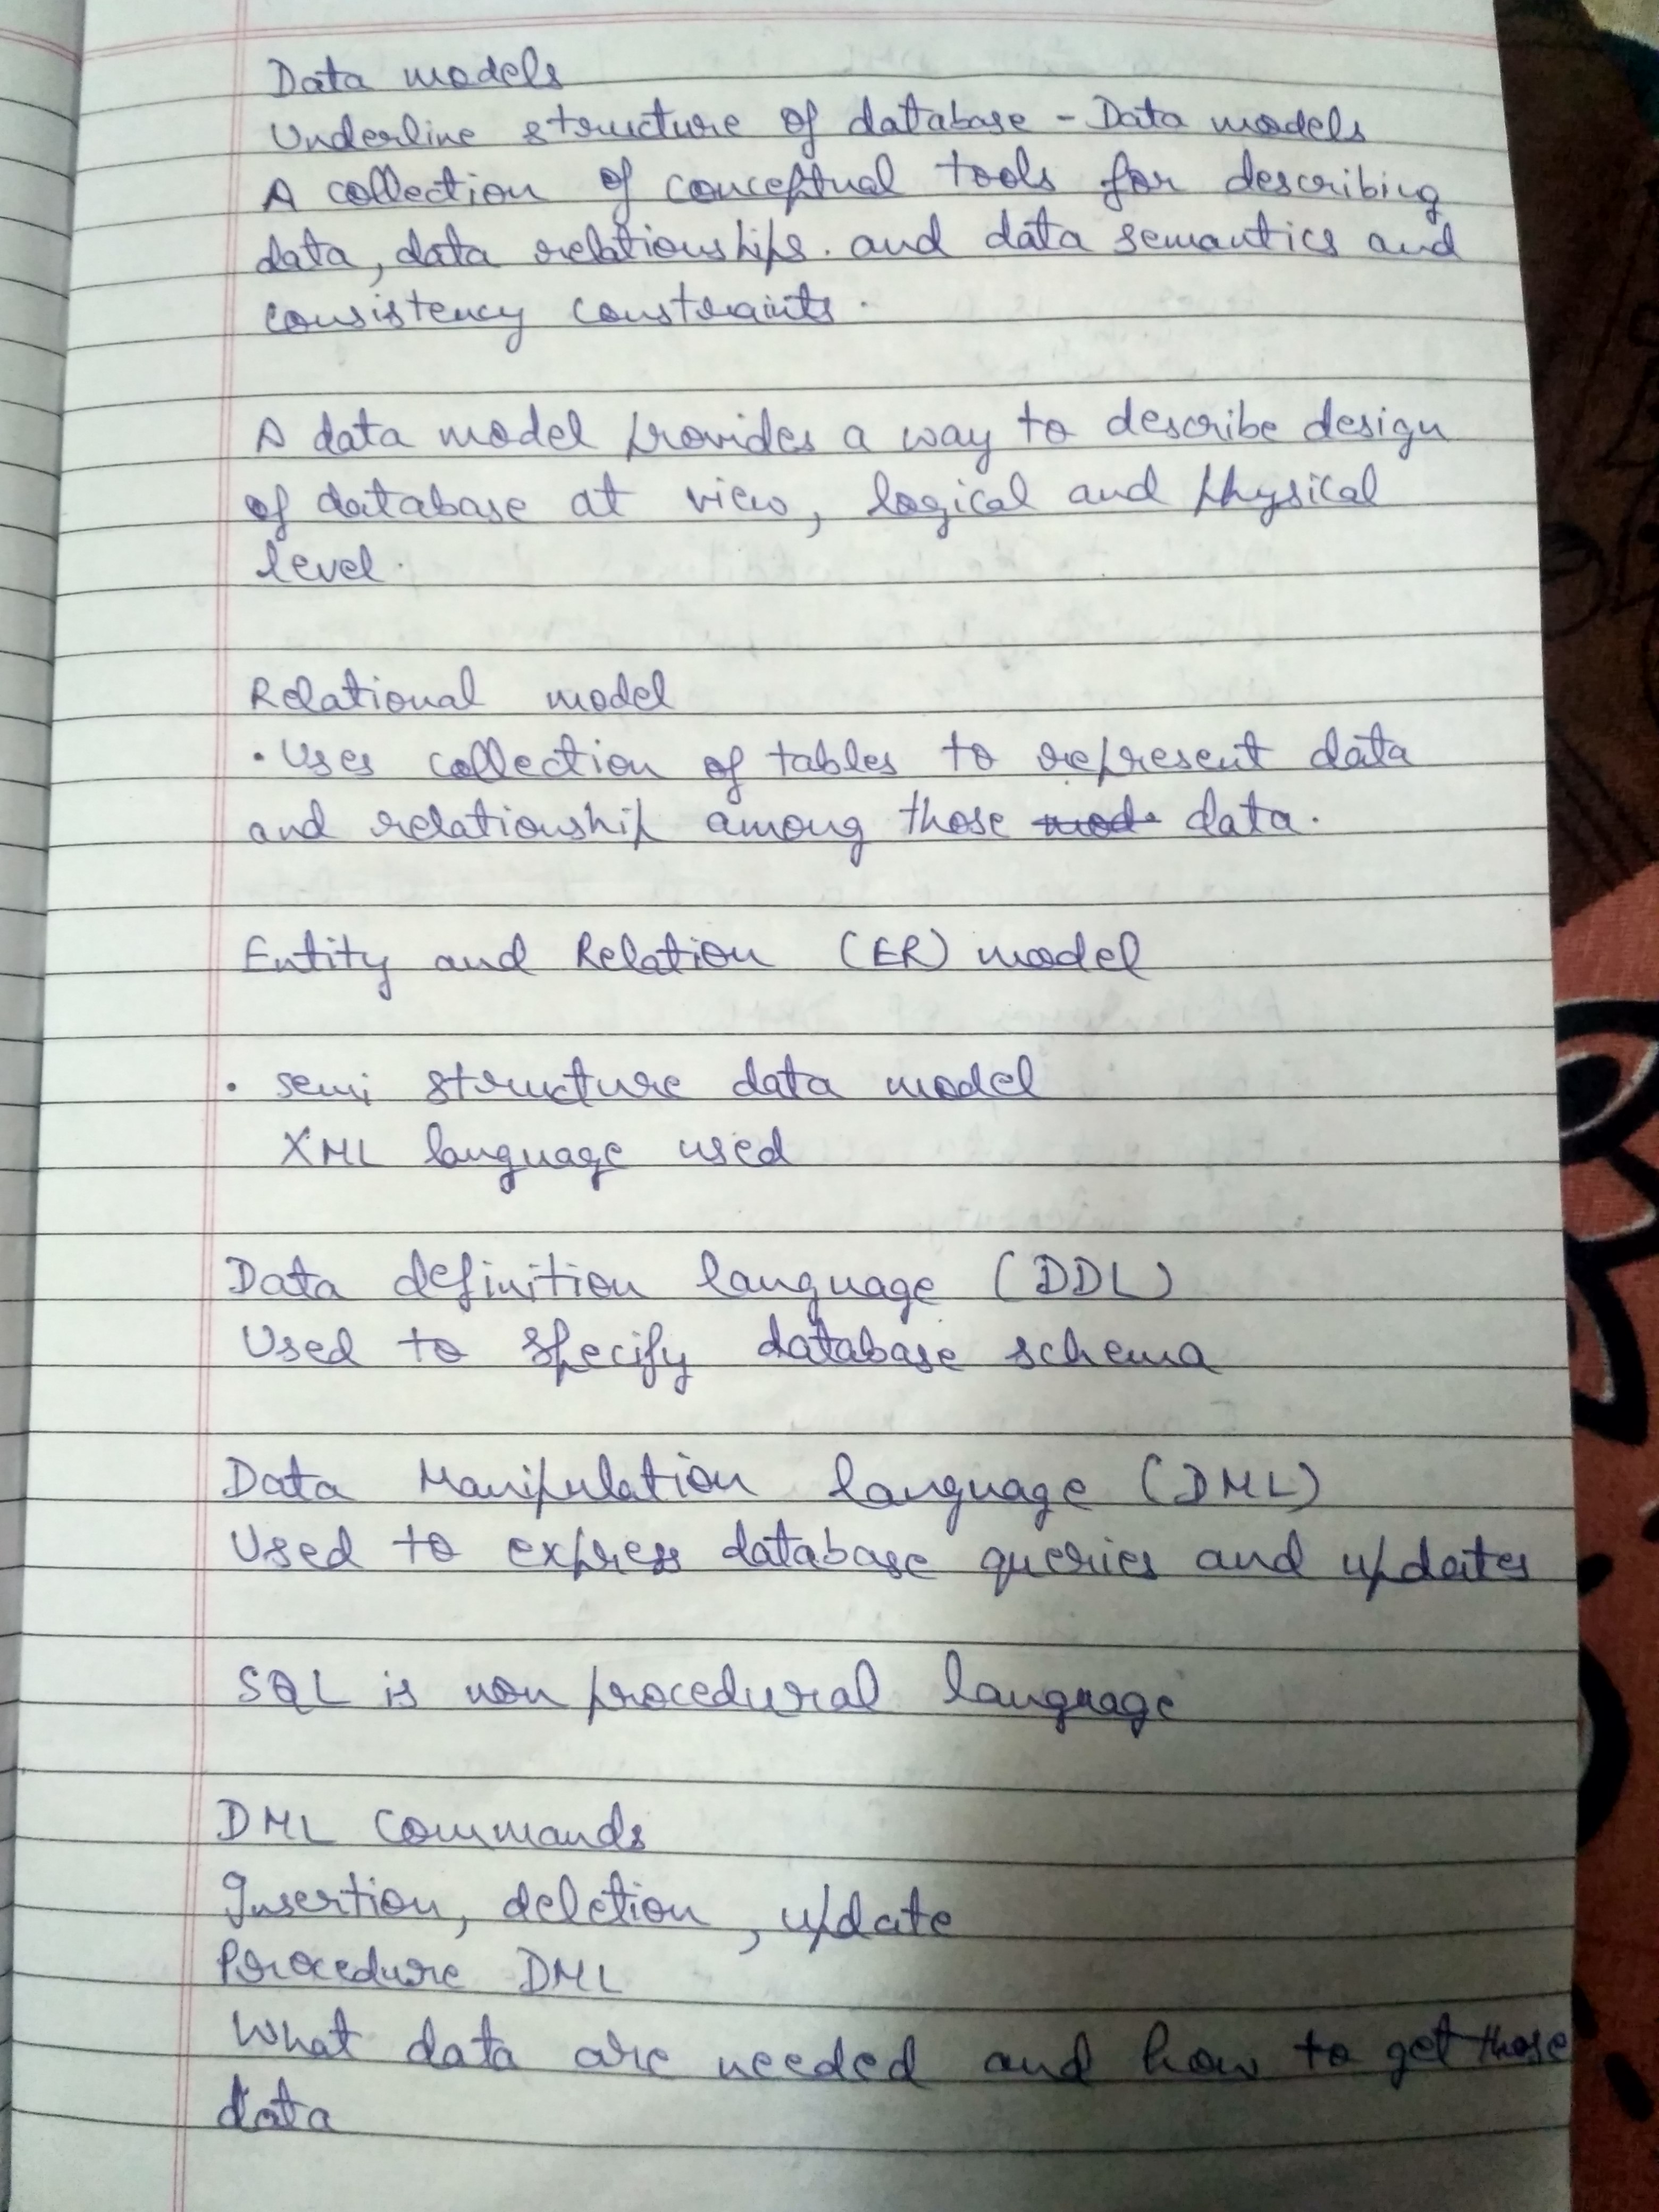 Data models
Underline structure of database - Data models
A collection of conceptual tools for describing
data, data relationships. and data semantics and
consistency constraints.
A data model provides a way to describe design
of database at view, logical and physical
level.
Relational model
• Uses collection of tables to represent data
and relationship among those data.
Entity and Relation (ER) model
• semi structure data model
XML language used
Data definition language (DDL)
Used to specify database schema
Data Manipulation language (DML)
Used to express database queries and updates
SQL is non procedural language
DML Commands
Insertion, deletion, update
Procedure DML
What data are needed and how to get those
data